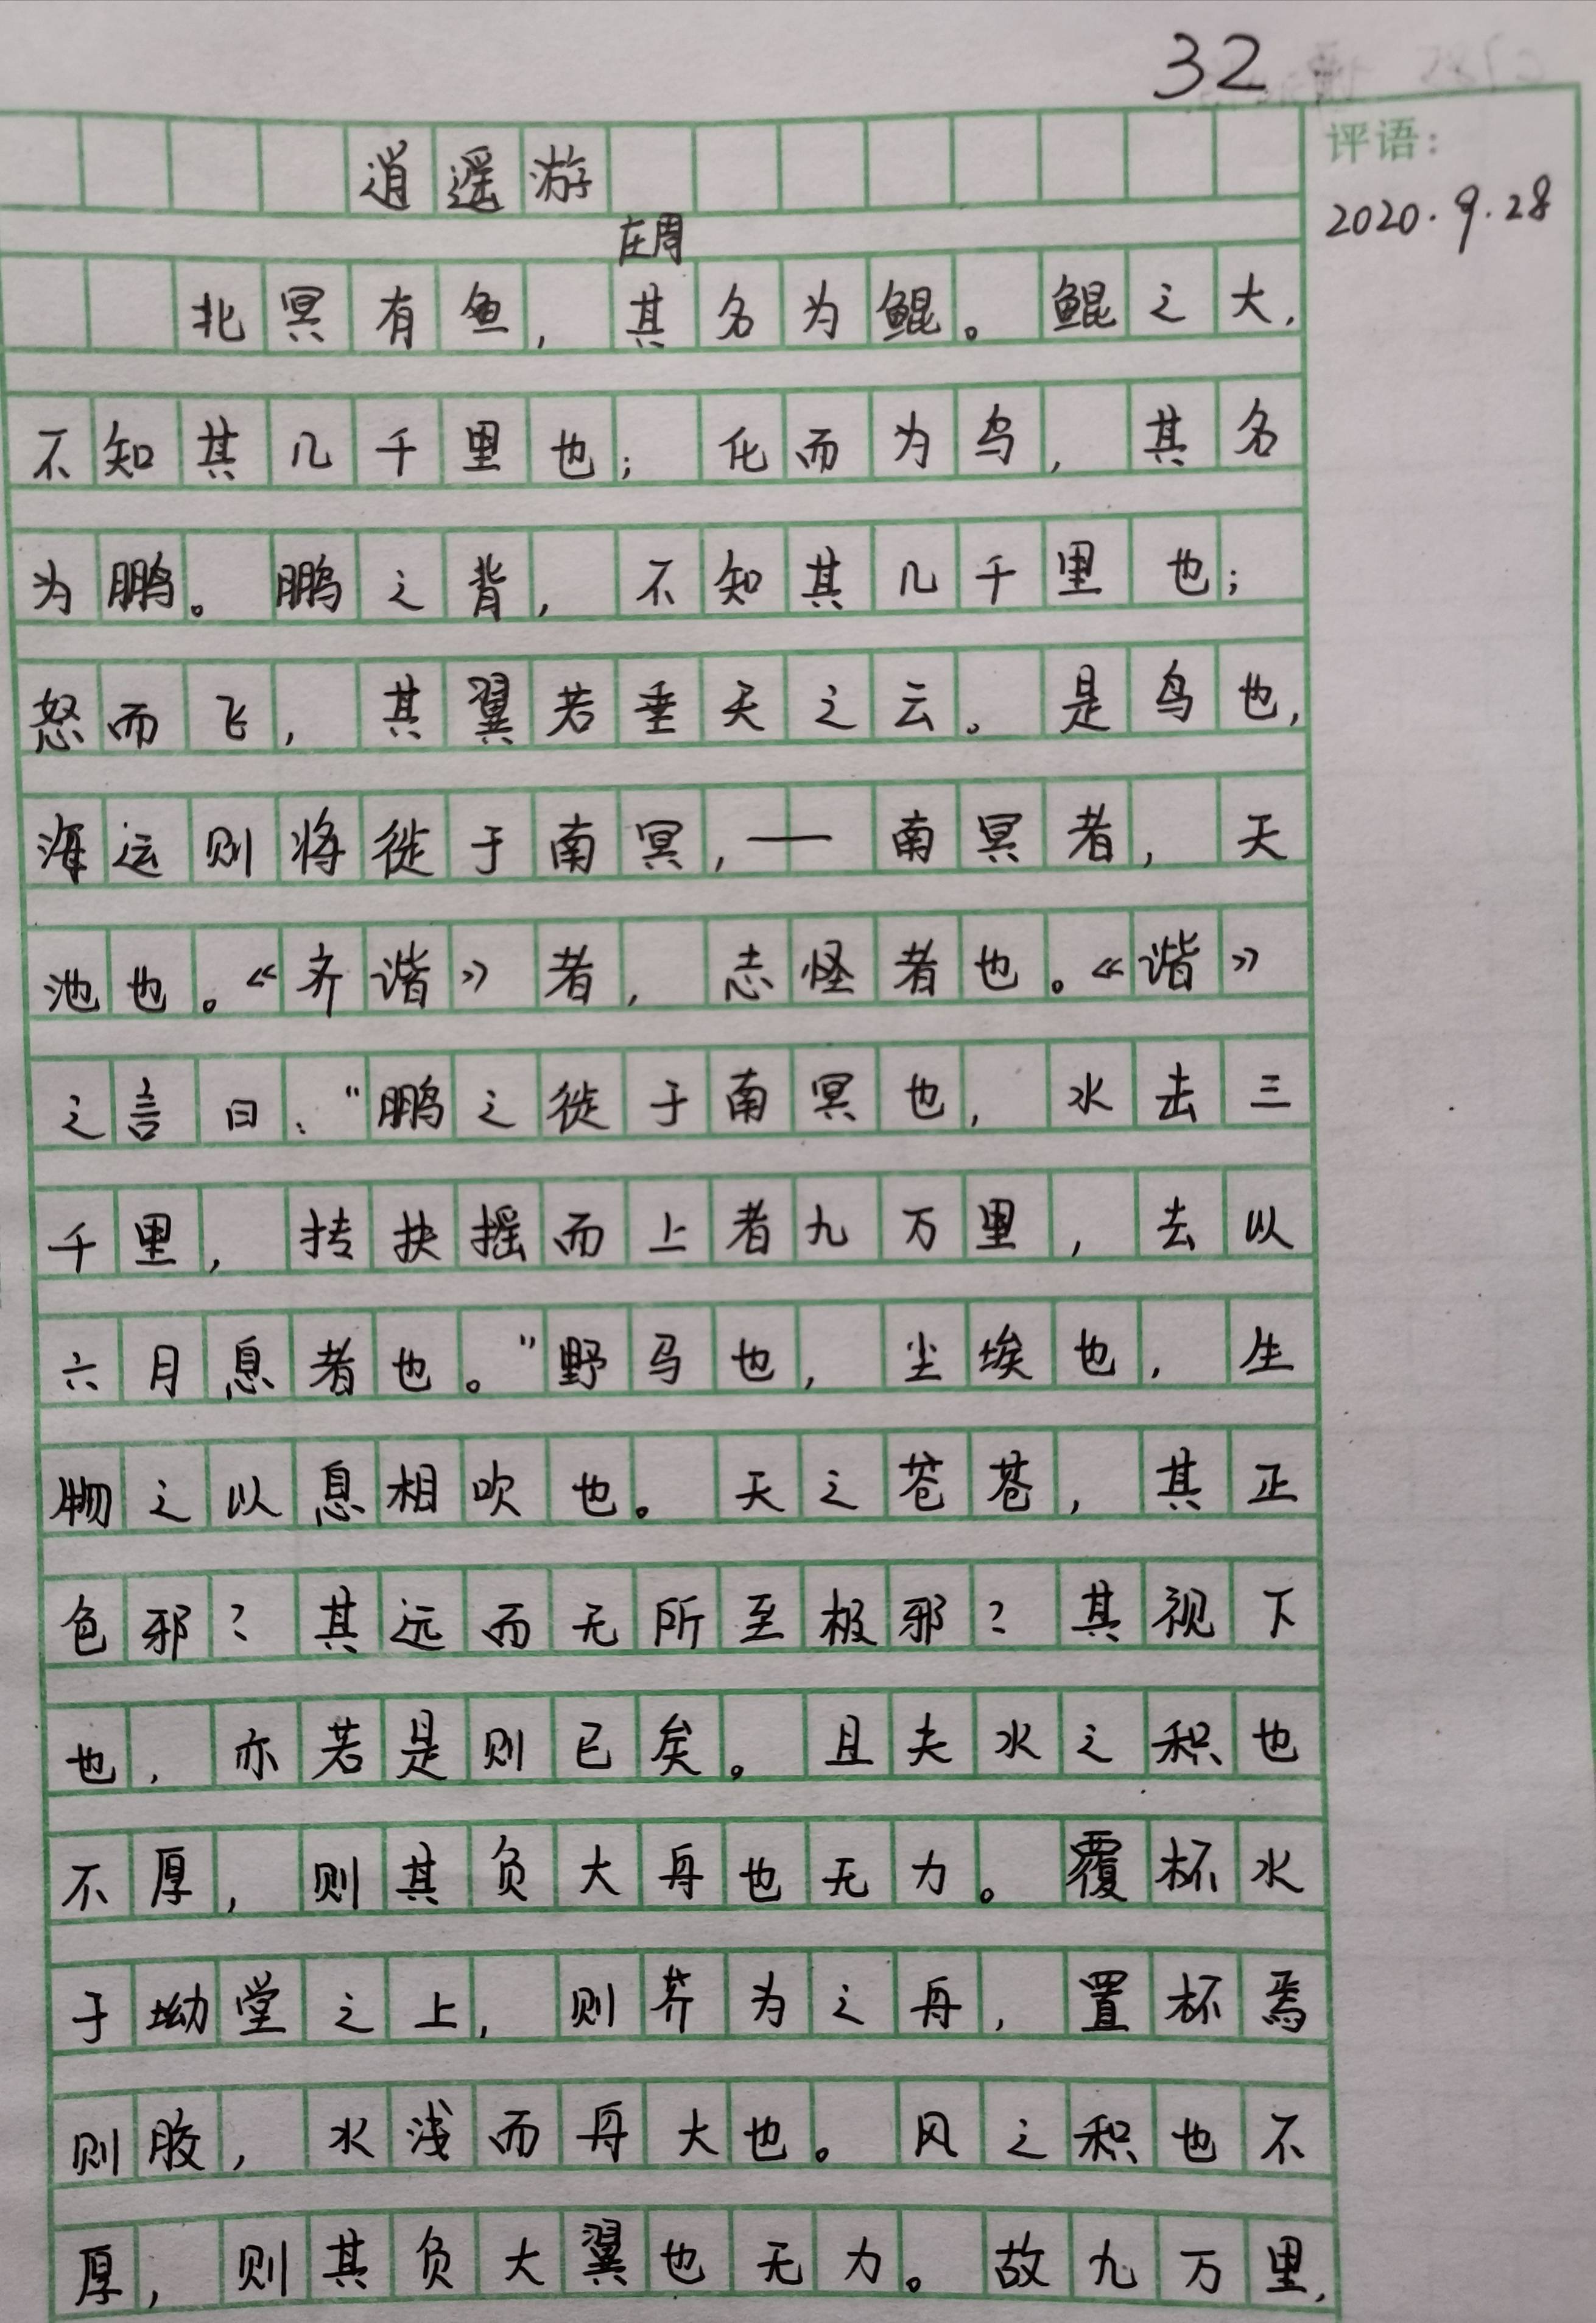 32
评语:
2020.9.28
逍遥游
庄周
北冥有鱼，其名为鲲。鲲之大，
不知其几千里也；化而为鸟，其名
为鹏。鹏之背，不知其几千里也；
怒而飞，其翼若垂天之云。是鸟也，
海运则将徙于南冥，——南冥者，天
池也。《齐谐》者，志怪者也。《谐》
之言曰：“鹏之徙于南冥也，水击三
千里，抟扶摇而上者九万里，去以
六月息者也。”野马也，尘埃也，生
物之以息相吹也。天之苍苍，其正
色邪？其远而无所至极邪？其视下
也，亦若是则已矣。且夫水之积也
不厚，则其负大舟也无力。覆杯水
于坳堂之上，则芥为之舟，置杯焉
则胶，水浅而舟大也。风之积也不
厚，则其负大翼也无力。故九万里，